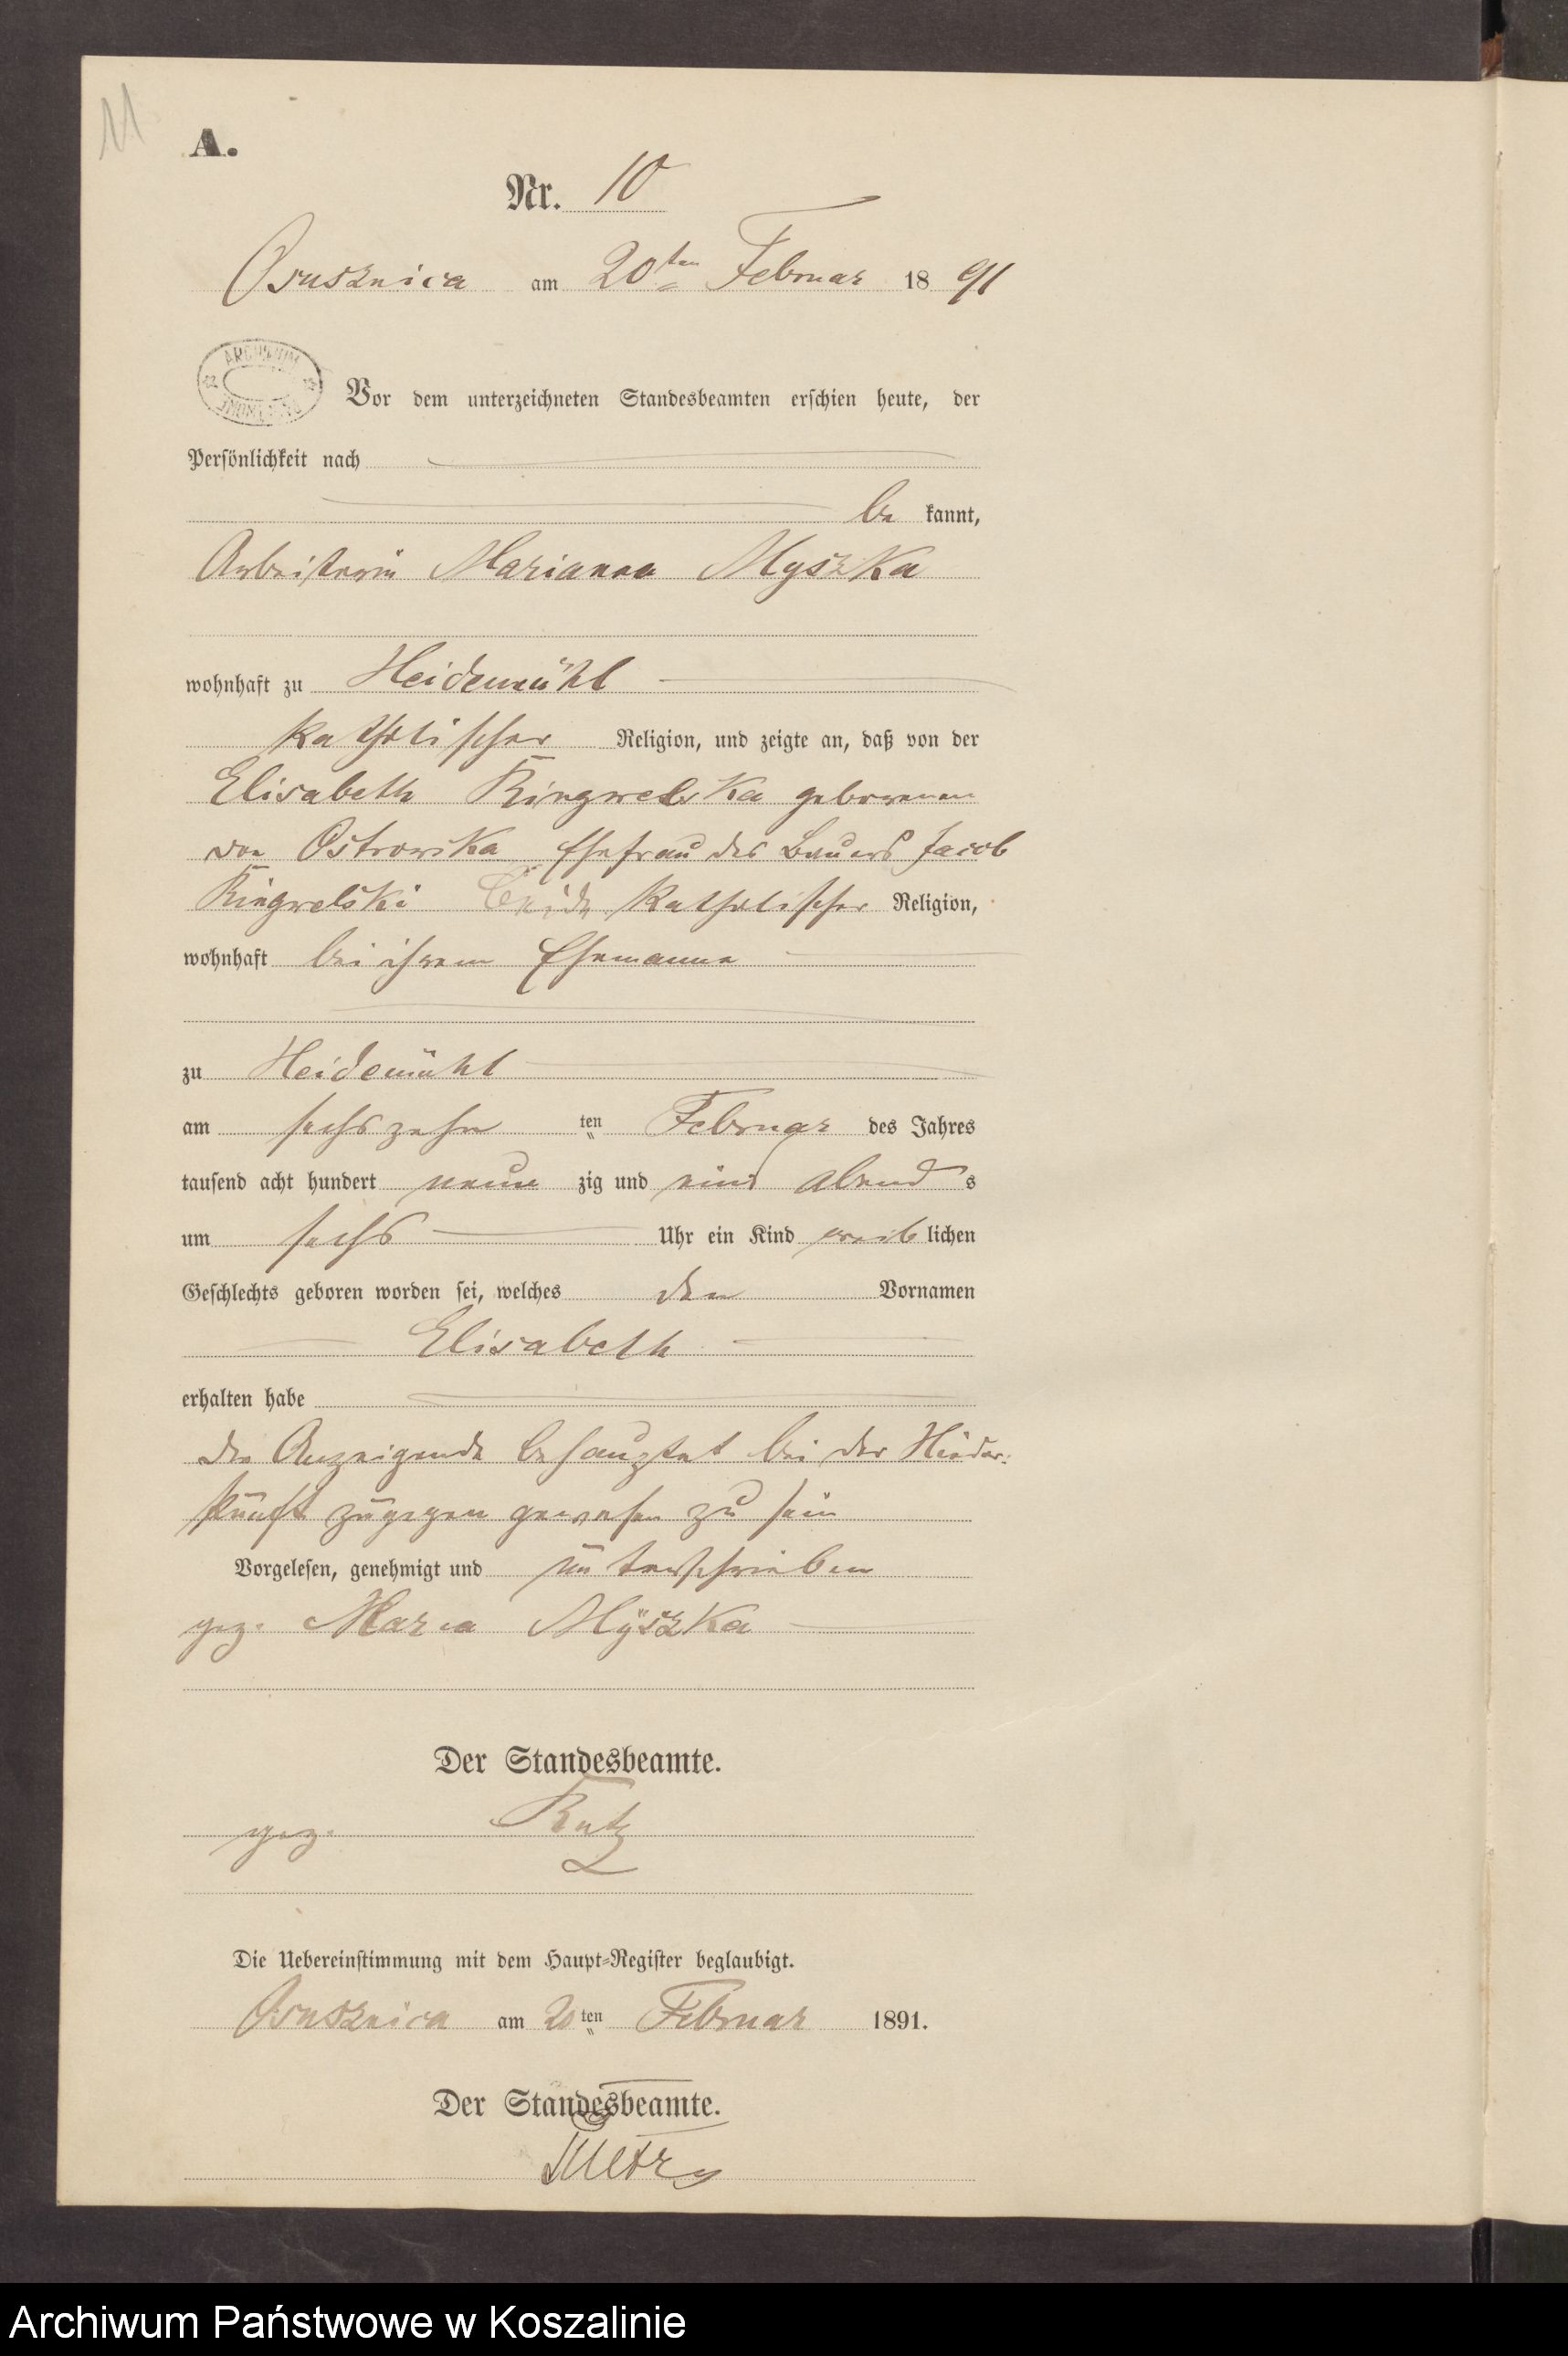 11
A.
Nr. 10
Ossusznica am 20ten Februar 1891
ARCHIWUM
Vor dem unterzeichneten Standesbeamten erschien heute, der
Persönlichkeit nach
be kannt,
Arbeiterin Marianna Myszka
wohnhaft zu Heidemühl
katholischer Religion, und zeigte an, daß von der
Elisabeth Ringwelska geborenen
von Ostrowska Ehefrau des Bauers Jacob
Ringwelski beide katholischer Religion,
wohnhaft bei ihrem Ehemanne
zu Heidemühl
am sechszehn ten Februar des Jahres
tausend acht hundert neun zig und eins abend s
um sechs Uhr ein Kind weib lichen
Geschlechts geboren worden sei, welches den Vornamen
Elisabeth
erhalten habe
die Anzeigende behauptet bei der Nieder-
kunft zugegen gewesen zu sein
Vorgelesen, genehmigt und unterschrieben
gez. Maria Myszka
Der Standesbeamte.
gez. Kutz
Die Uebereinstimmung mit dem Haupt-Register beglaubigt.
Ossusznica am 20 ten Februar 1891.
Der Standesbeamte.
Archiwum Państwowe w Koszalinie